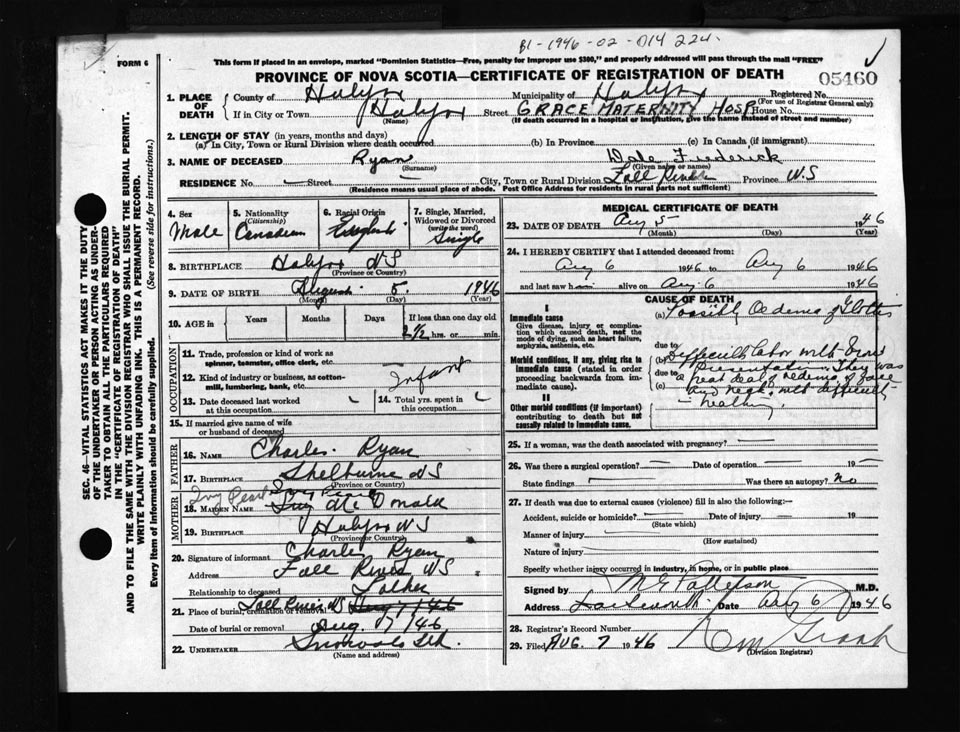 B1-1946-02-014 224.
FORM 6
This form if placed in an envelope, marked "Dominion Statistics—Free, penalty for improper use $300," and properly addressed will pass through the mail "FREE"
PROVINCE OF NOVA SCOTIA—CERTIFICATE OF REGISTRATION OF DEATH
05460
1. PLACE OF DEATH
County of Halifax Municipality of Halifax Registered No.
(For use of Registrar General only)
If in City or Town Halifax Street GRACE MATERNITY HOSP House No.
(Name) (If death occurred in a hospital or institution, give the name instead of street and number)
2. LENGTH OF STAY (in years, months and days)
(a) In City, Town or Rural Division where death occurred (b) In Province (c) In Canada (if immigrant)
3. NAME OF DECEASED Ryan Dale Frederick
(Surname) (Given name or names)
RESIDENCE No. — Street — City, Town or Rural Division Fall River Province N.S
(Residence means usual place of abode. Post Office Address for residents in rural parts not sufficient)
SEC. 46—VITAL STATISTICS ACT MAKES IT THE DUTY
OF THE UNDERTAKER OR PERSON ACTING AS UNDER-
TAKER TO OBTAIN ALL THE PARTICULARS REQUIRED
IN THE "CERTIFICATE OF REGISTRATION OF DEATH"
AND TO FILE THE SAME WITH THE DIVISION REGISTRAR WHO SHALL ISSUE THE BURIAL PERMIT.
WRITE PLAINLY WITH UNFADING INK. THIS IS A PERMANENT RECORD.
Every item of information should be carefully supplied. (See reverse side for instructions.)
4. Sex Male
5. Nationality (Citizenship) Canadian
6. Racial Origin English
7. Single, Married, Widowed or Divorced (write the word) Single
8. BIRTHPLACE Halifax NS
(Province or Country)
9. DATE OF BIRTH August 5. 1946
(Month) (Day) (Year)
10. AGE in Years Months Days If less than one day old
2½ hrs. or min.
OCCUPATION
11. Trade, profession or kind of work as spinner, teamster, office clerk, etc.
12. Kind of industry or business, as cotton-mill, lumbering, bank, etc. Infant
13. Date deceased last worked at this occupation
14. Total yrs. spent in this occupation
15. If married give name of wife or husband of deceased
FATHER
16. NAME Charles Ryan
17. BIRTHPLACE Shelburne NS
(Province or Country)
MOTHER
Ivy Pearl
18. MAIDEN NAME Ivy McDonald
19. BIRTHPLACE Halifax NS
(Province or Country)
20. Signature of informant Charles Ryan
Address Fall River NS
Relationship to deceased Father
21. Place of burial, cremation or removal Fall River NS
Date of burial or removal Aug 7/46
22. UNDERTAKER Snow Ltd.
(Name and address)
MEDICAL CERTIFICATE OF DEATH
23. DATE OF DEATH Aug 5 1946
(Month) (Day) (Year)
24. I HEREBY CERTIFY that I attended deceased from
Aug 6 1946 to Aug 6 1946
and last saw h alive on Aug 6 1946
CAUSE OF DEATH
I
Immediate cause
Give disease, injury or complication which caused death, not the mode of dying, such as heart failure, asphyxia, asthenia, etc.
(a) Possibly Oedema of Glottis
due to
Morbid conditions, if any, giving rise to immediate cause (stated in order proceeding backwards from immediate cause).
(b) Difficult labor with
Presentation. There was
due to
a great deal of oedema of face
(c) and neck, with difficult
II
Other morbid conditions (if important) contributing to death but not causally related to immediate cause.
25. If a woman, was the death associated with pregnancy? —
26. Was there a surgical operation? — Date of operation — 19 —
State findings Was there an autopsy? No
27. If death was due to external causes (violence) fill in also the following:—
Accident, suicide or homicide? Date of injury 19
(State which)
Manner of injury
(How sustained)
Nature of injury
Specify whether injury occurred in industry, in home, or in public place
Signed by M.G. Patterson M.D.
Address Date Aug 6 1946
28. Registrar's Record Number
29. Filed AUG. 7 1946
(Division Registrar)